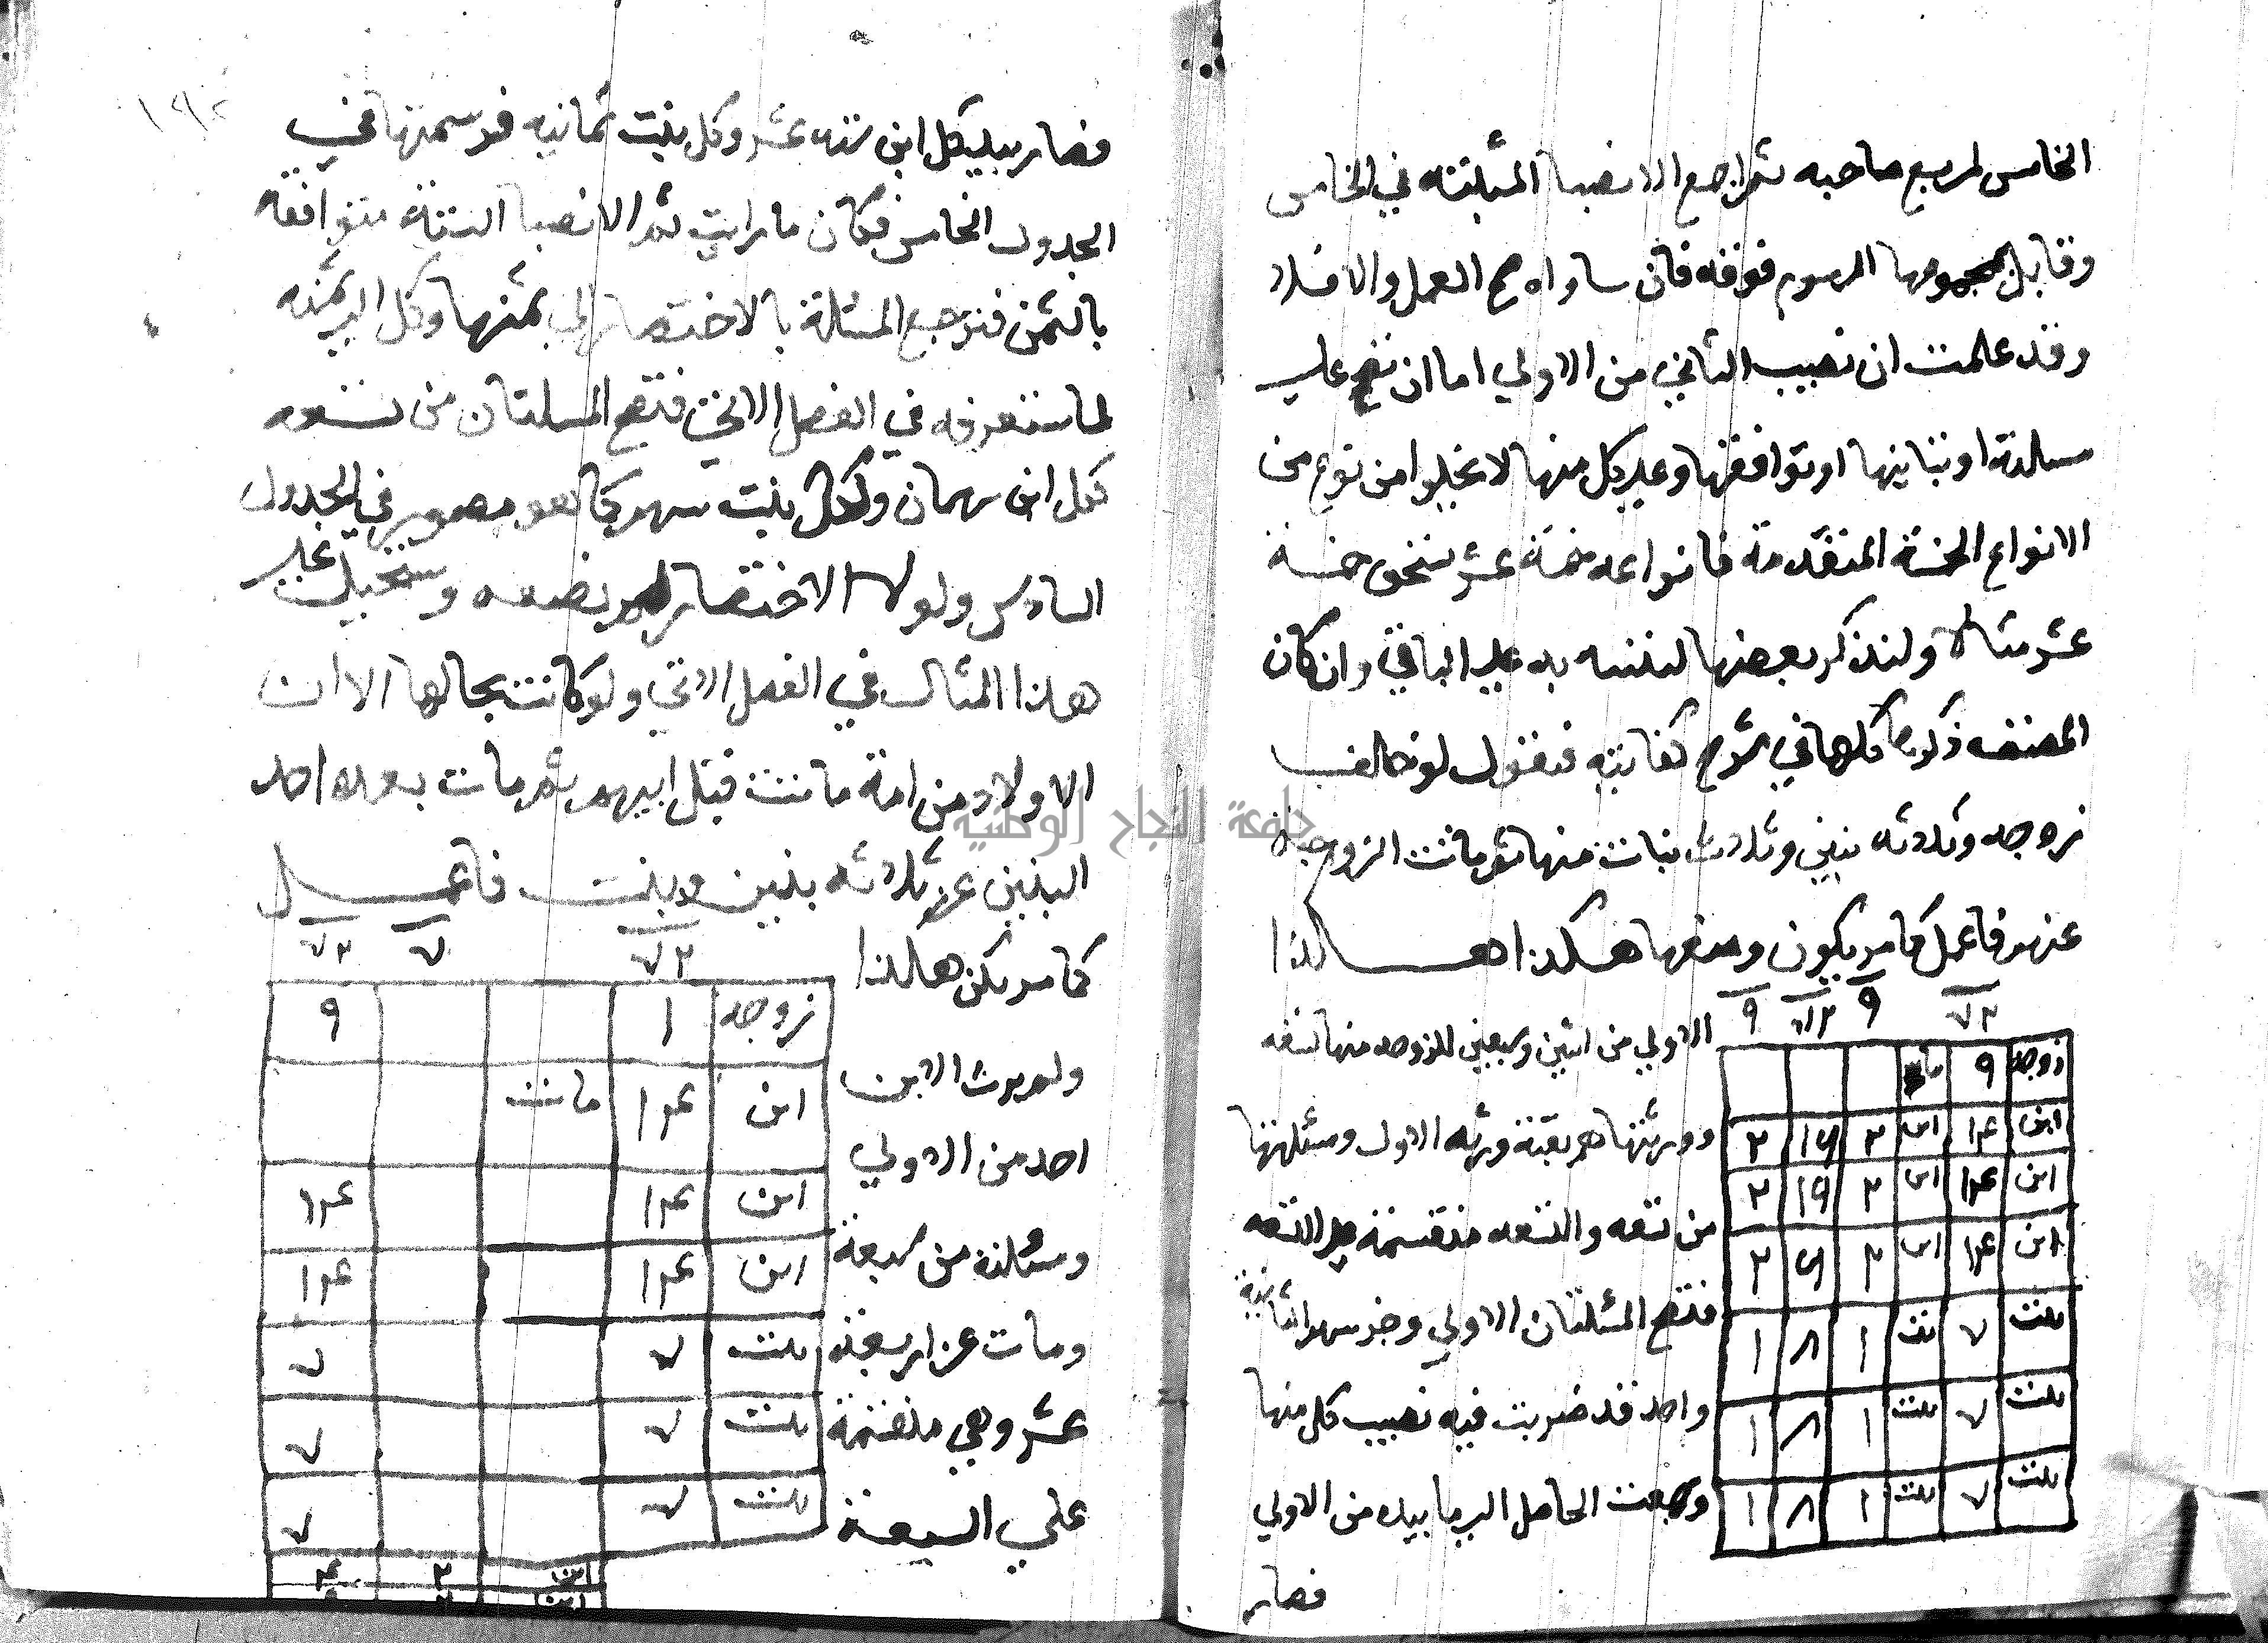 الخامس لمربع صاحبه ثم اجمع الانصبا المثبتته في الخامس
وقابل بمجموعها المرسوم فوقه فان ساواه صح العمل والا فلا
وقد علمت ان نصيب الثاني من الاولي اما ان تصح علي
مسالته او تباينها او توافقها وعلي كل منها لا يخلوا من نوع من
الانواع الخمسة المتقدمة فانواعه خمسة عشر تستحق خمسة
عشر مثالا ولنذكر بعضها لننبه به علي الباقي وان كان
المصنف ذكرها كلها في شرح كفايته فنقول لو خالف
زوجه وثلاثه بنين وثلاث بنات منها ثم ماتت الزوجة
عنهم فاعمل كما مر يكون وضعها هكذا هكذا
٧٢ ٩ ٧٢ ٩
زوجه ٩ ماتت
ابن ١٤ ابن ٢ ١٦ ٢
ابن ١٤ ابن ٢ ١٦ ٢
ابن ١٤ ابن ٢ ١٦ ٢
بنت ٧ بنت ١ ٨ ١
بنت ٧ بنت ١ ٨ ١
بنت ٧ بنت ١ ٨ ١
الاولي من اثنين وسبعين للزوجه منها تسعه
وورثتها هم بقية ورثه الاول ومسئلتها
من تسعه والتسعه منقسمة علي التسعه
فتصح المسئلتان الاولي وجز سهم الثانية
واحد قد ضربت فيه نصيب كل منها
وجمعت الحاصل الي ما بيده من الاولي
فصار
١٩٢
فصار بيد كل ابن سته عشر وكل بنت ثمانيه فرسمتها في
الجدول الخامس فكان ما رايت ثم الانصبا الستة متوافقه
بالثمن فترجع المسئلة بالاختصار الي ثمنها وكل الي ثمنه
لما ستعرفه في الفصل الاتي فتصح المسلتان من تسعه
لكل ابن سهمان ولكل بنت سهم كما هو مصور في الجدول
السادس ولولا الاختصار لم نضعه وسنحيل علي
هذا المثال في الفصل الاتي ولو كانت بحالها الا ان
الاولاد من امة ماتت قبل ابيهم ثم مات بعده احد
البنين عن ثلاثه بنين وبنت فاعمل
كما مر يكن هكذا
٧٢ ٧ ٧٢
زوجه ١ ٩
ابن ١٤ مات
ابن ١٤ ١٤
ابن ١٤ ١٤
بنت ٧ ٧
بنت ٧ ٧
بنت ٧ ٧
ابن ٢ ٤
ابن ٢ ٤
ولم يرث الابن
احد من الاولي
ومسئلته من سبعة
ومات عن اربعة
عشر وهي منقسمة
علي السبعة
جامعة النجاح الوطنية